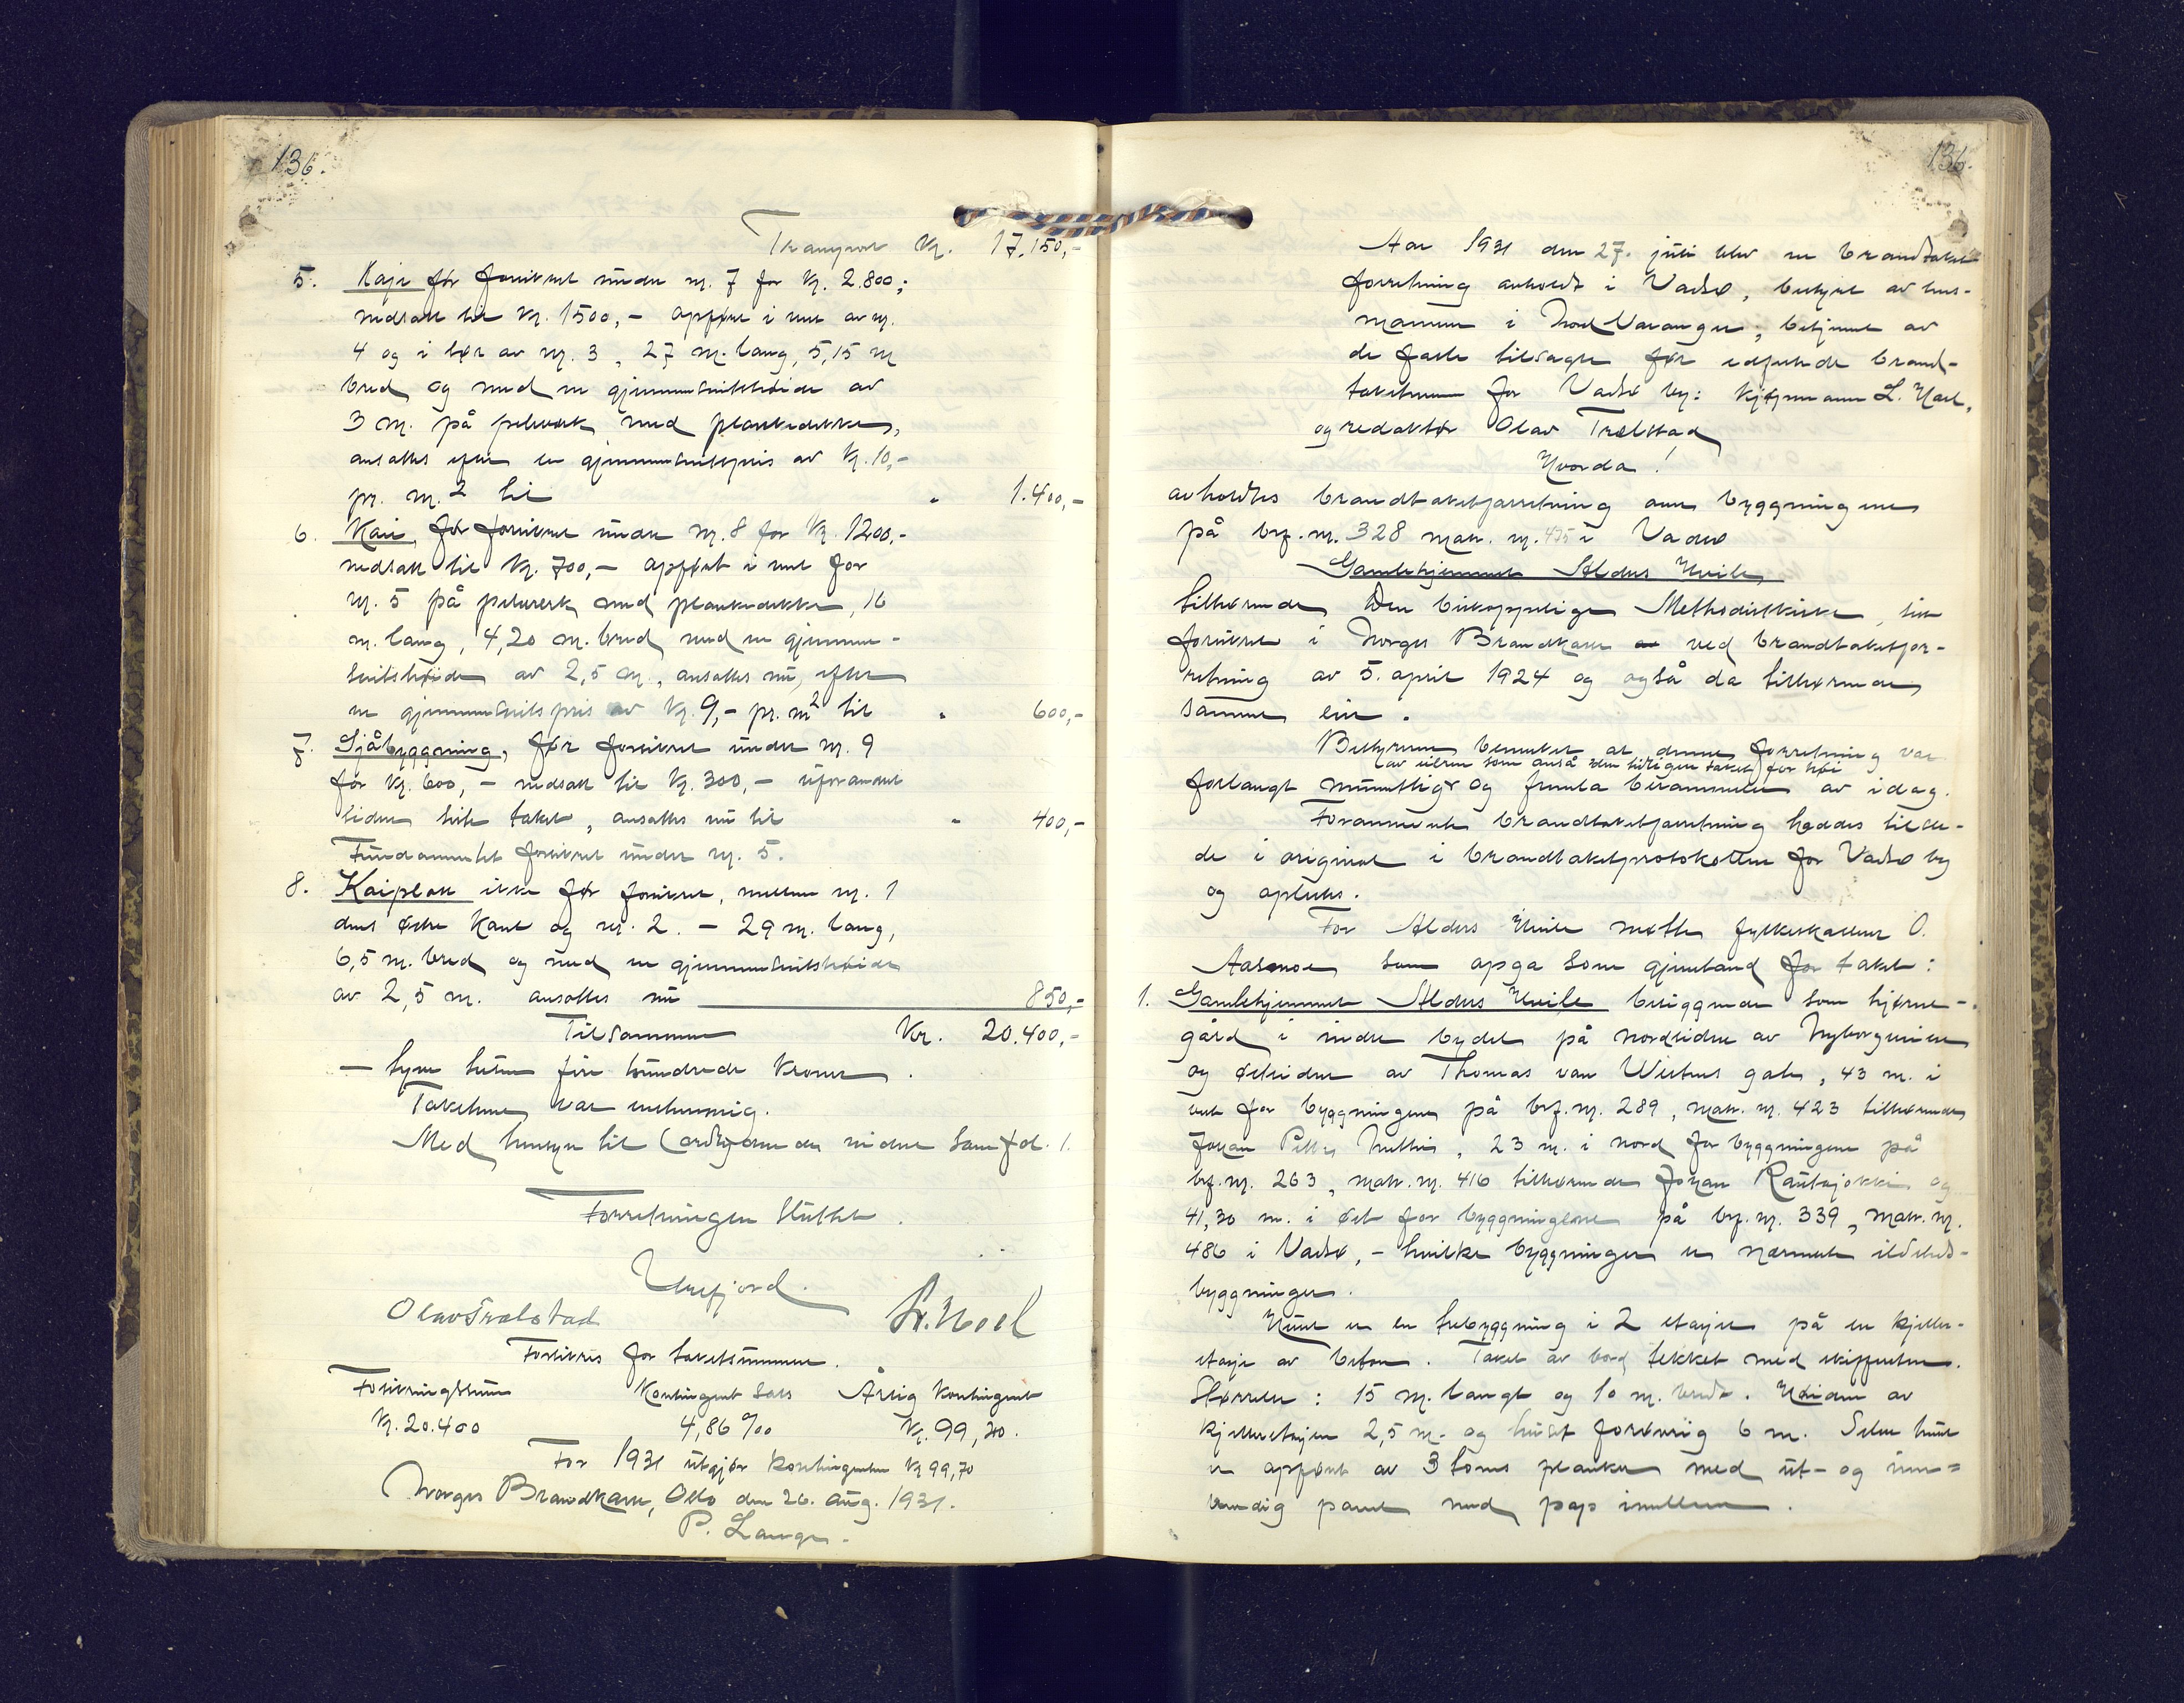 136.
Transport Kr. 17.150,-
5. Kaje før forsikret under nr. 7 for kr. 2.800;
nedsatt til kr. 1500,- opført i vest av nr.
4 og i bør av nr. 3, 27 m. lang, 5,15 m
bred og med en gjennemsnitshöide av
3 m. på peleverk med plankedekke,
ansattes efter en gjennemsnitspris av kr. 10,-
pr. m.2 til " 1.400,-
6. Kaie, før forsikret under nr. 8 for kr. 1200,-
nedsatt til kr. 700,- opført i vest for
nr. 5 på peleverk med plankedekke, 16
m. lang, 4,20 m. bred med en gjennem-
snitshöide av 2,5 m., ansattes nu efter
en gjennemsnitspris av kr. 9,- pr. m2 til " 600,-
7. Sjåbyggning, før forsikret under nr. 9
for kr. 600,- nedsatt til kr. 300,- uforandret
siden siste takst, ansattes nu til " 400,-
Fundamentet forsikret under nr. 5.
8. Kaiplatt ikke før forsikret, mellem nr. 1
dens østre kant og nr. 2. - 29 m. lang,
6,5 m. bred og med en gjennemsnitshöide
av 2,5 m. ansattes nu 850,-
Tilsammen Kr. 20.400,-
- tyve tusen fire hundrede kroner.
Taksten var enstemmig.
Med hensyn til iden som fol. 1.
Forretningen sluttet.
Uhefjord.
Olav Trælstad L. Noel
Forsikres for takstsummen.
Forsikringssum Kontingent sats Årlig kontingent
Kr. 20.400 4,86 ‰ Kr. 99,20.
For 1931 utgjør kontingenten kr 99,70
Norges Brandkasse, Oslo den 26. aug. 1931.
P. Lange.
136.
Aar 1931 den 27. juli blev en brandtakst
forretning avholdt i Vadsø, bestyrt av lens-
mannen i Nord Varanger, betjent av
de faste tilsagte før edfestede brand-
takstmenn for Vadsø by: kjøpmann L.
og redaktør Olav Trælstad
Hvorda!
avholdtes brandtakstforretning over byggningene
på brf. nr. 328 matr. nr. 475 i Vadsø
Gamlehjemmet Alders Hvile,
tilhørende Den biskoppelige Methodistkirke, sist
forsikret i Norges Brandkasse ved brandtakstfor-
retning av 5. april 1924 og også da tilhørende
samme eier.
Bestyreren bemerket at denne forretning var
av eieren som anså den tidligere takst for höi
forlangt munntligt og berammelse av idag.
Forannevnte brandtakstforretning hadde tilste-
de i original i brandtakstprotokollen for Vadsø by
og oplestes.
For Alders Hvile møtte fylkeskasserer O.
Aasmoe som opga som gjenstand for takst:
1. Gamlehjemmet Alders Hvile beliggende som hjørne-
gård i indre bydel på nordsiden av Nyborgveien
og østsiden av Thomas von Westens gate, 43 m. i
vest for byggningene på brf. nr. 289, matr. nr. 423 tilhørende
Johan Petter, 23 m. i nord for byggningene på
brf. nr. 263, matr. nr. 416 tilhørende Johan Rautajokki og
41,30 m. i øst for byggningene på brf. nr. 339, matr. nr.
486 i Vadsø, - hvilke byggninger er nærmeste ildsteds-
byggninger.
Huset er en trebyggning i 2 etasjer på en kjeller-
etasje av beton. Taket av bord tekket med skiffersten.
Størrelse: 15 m. langt og 10 m. bredt. Höiden av
kjelleretasjen 2,5 m. og huset forøvrig 6 m. Selve huset
er opført av 3 toms planker med ut- og inn-
vendig panel med papp imellem.